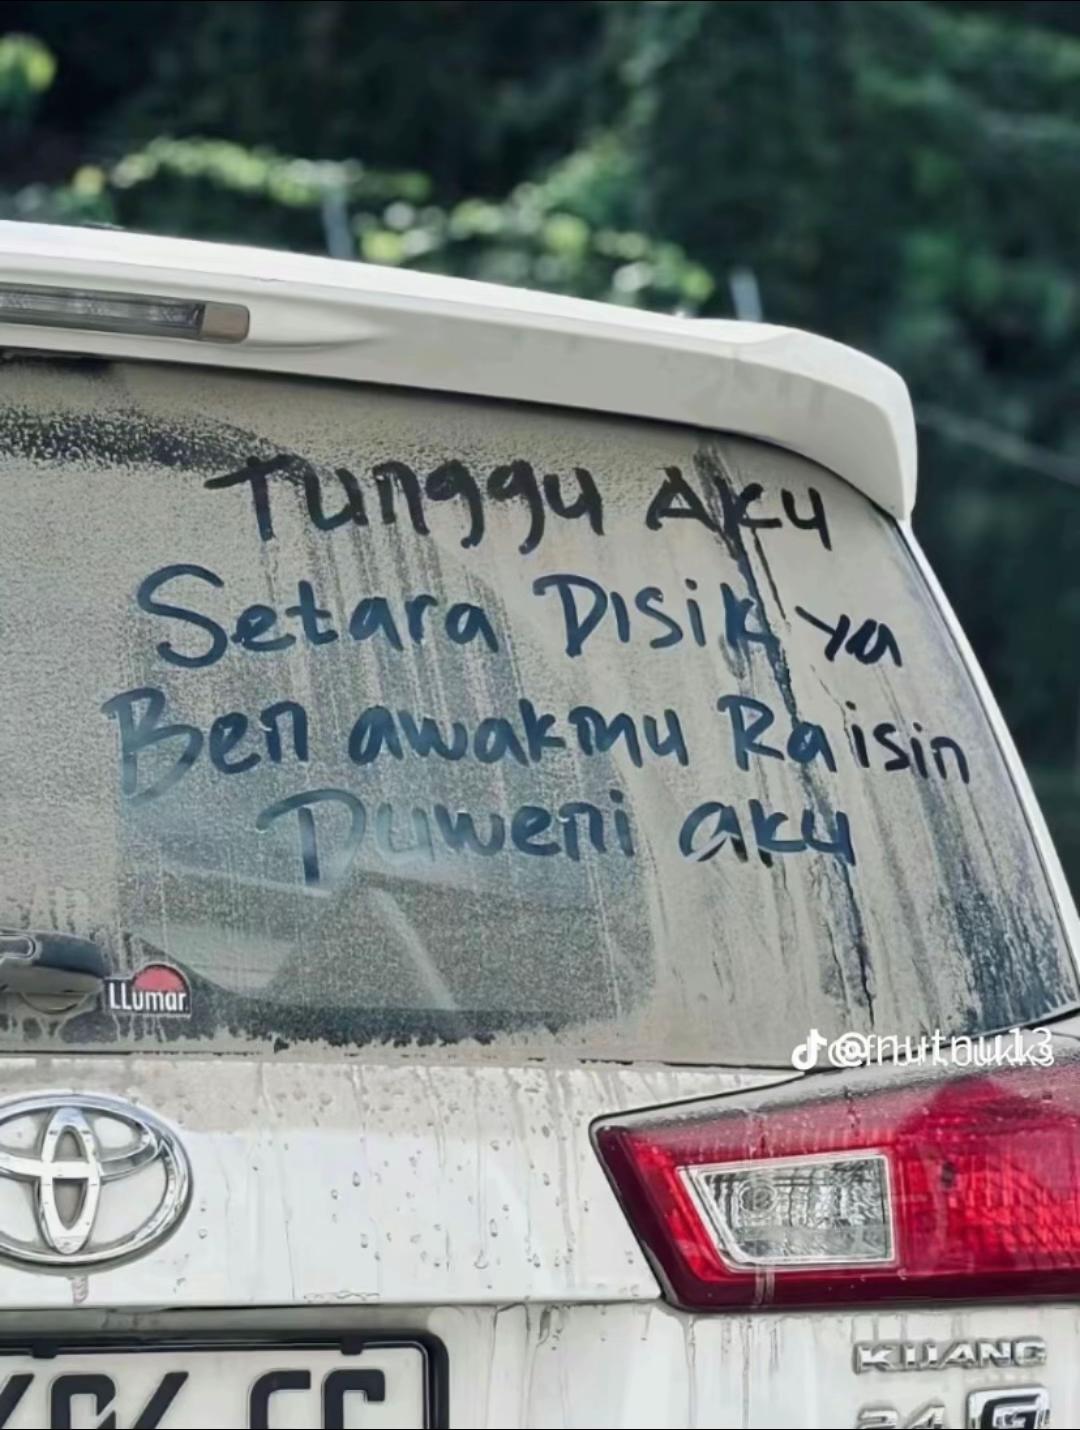 Tunggu Aku
Setara Disik ya
Ben awakmu Ra isin
Duweni aku
LLumar
KIJANG
2.4 G